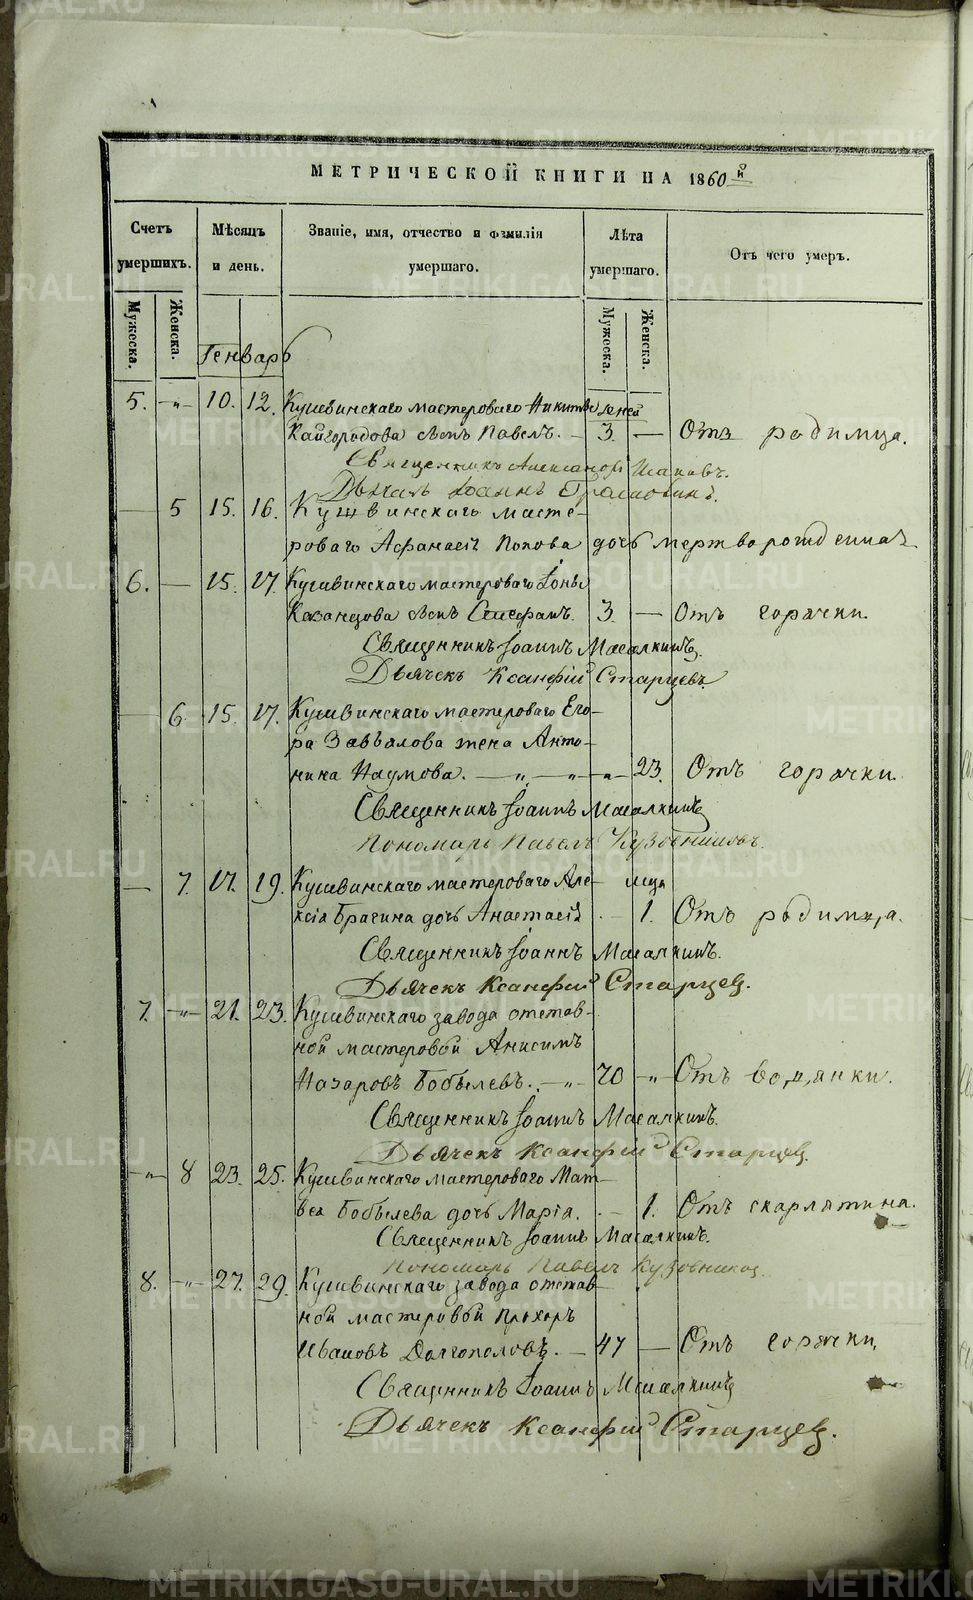 МЕТРИЧЕСКОЙ КНИГИ НА 1860й
Счетъ умершихъ.
Мѣсяцъ и день.
Званіе, имя, отчество и фамилія умершаго.
Лѣта умершаго.
Отъ чего умеръ.
Мужеска.
Женска.
Мужеска.
Женска.
Генварь
5. -"- 10. 12. Кушвинскаго мастероваго Никиты дней
Кайгородова сынъ Павелъ. 3. — Отъ родимца.
Священникъ Александръ
Дьячекъ Іоаннъ
— 5 15. 16. Кушвинскаго масте-
роваго Афанасія Попова дочь мертворожденная
6. — 15. 17. Кушвинскаго мастероваго Іоны
Казанцова сынъ Стефанъ. 3. — Отъ горячки.
Священникъ Іоаннъ Масалкинъ.
Дьячекъ Ксанфій Старцевъ.
— 6. 15. 17. Кушвинскаго мастероваго Его-
ра Завьялова жена Анто-
нина Наумова. — „ — „ — „ — 23. Отъ горячки.
Священникъ Іоаннъ Масалкинъ
Пономарь Павелъ Кузовниковъ.
— 7. 17. 19. Кушвинскаго мастероваго Але- мца
ксія Брагина дочь Анастасія . - 1. Отъ родимца.
Священникъ Іоаннъ Масалкинъ.
Дьячекъ Ксанфій Старцевъ.
7. -"- 21. 23. Кушвинскаго завода отстав-
ной мастеровой Анисимъ
Назаровъ Бобылевъ. -„- 70 -„- Отъ водянки.
Священникъ Іоаннъ Масалкинъ.
Дьячекъ Ксанфій Старцевъ.
-"- 8 23. 25. Кушвинскаго мастероваго Мат-
вея Бобылева дочь Марія. . - 1. Отъ скарлятина.
Священникъ Іоаннъ Масалкинъ.
Пономарь Павелъ Кузовников
8. -"- 27. 29. Кушвинскаго завода отстав-
ной мастеровой Прохоръ
Ивановъ Долгополовъ. — 47 — Отъ горячки,
Священникъ Іоаннъ Масалкинъ
Дьячекъ Ксанфій Старцевъ.
METRIKI.GASO-URAL.RU